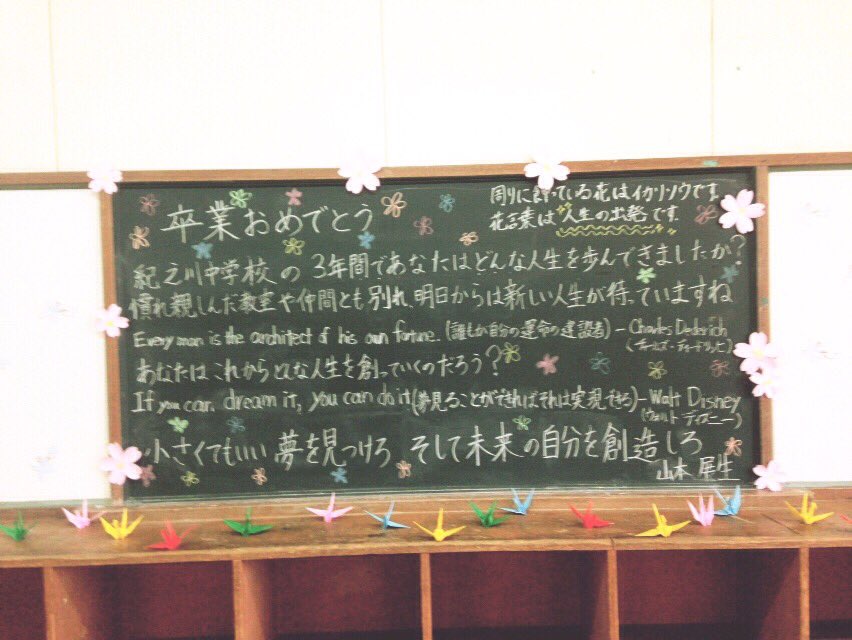 周りに飾っている花はイカリソウです
花言葉は"人生の出発"です
卒業おめでとう
紀之川中学校の3年間であなたはどんな人生を歩んできましたか?
慣れ親しんだ教室や仲間とも別れ明日からは新しい人生が待っていますね
Every man is the architect of his own fortune. (誰もが自分の運命の建設者) - Charles Dederich
(チャールズ・ディードリッヒ)
あなたはこれからどんな人生を創っていくのだろう?
If you can dream it, you can do it (夢見ることができればそれは実現できる) - Walt Disney
(ウォルト・ディズニー)
小さくてもいい 夢を見つけろ そして未来の自分を創造しろ
山本